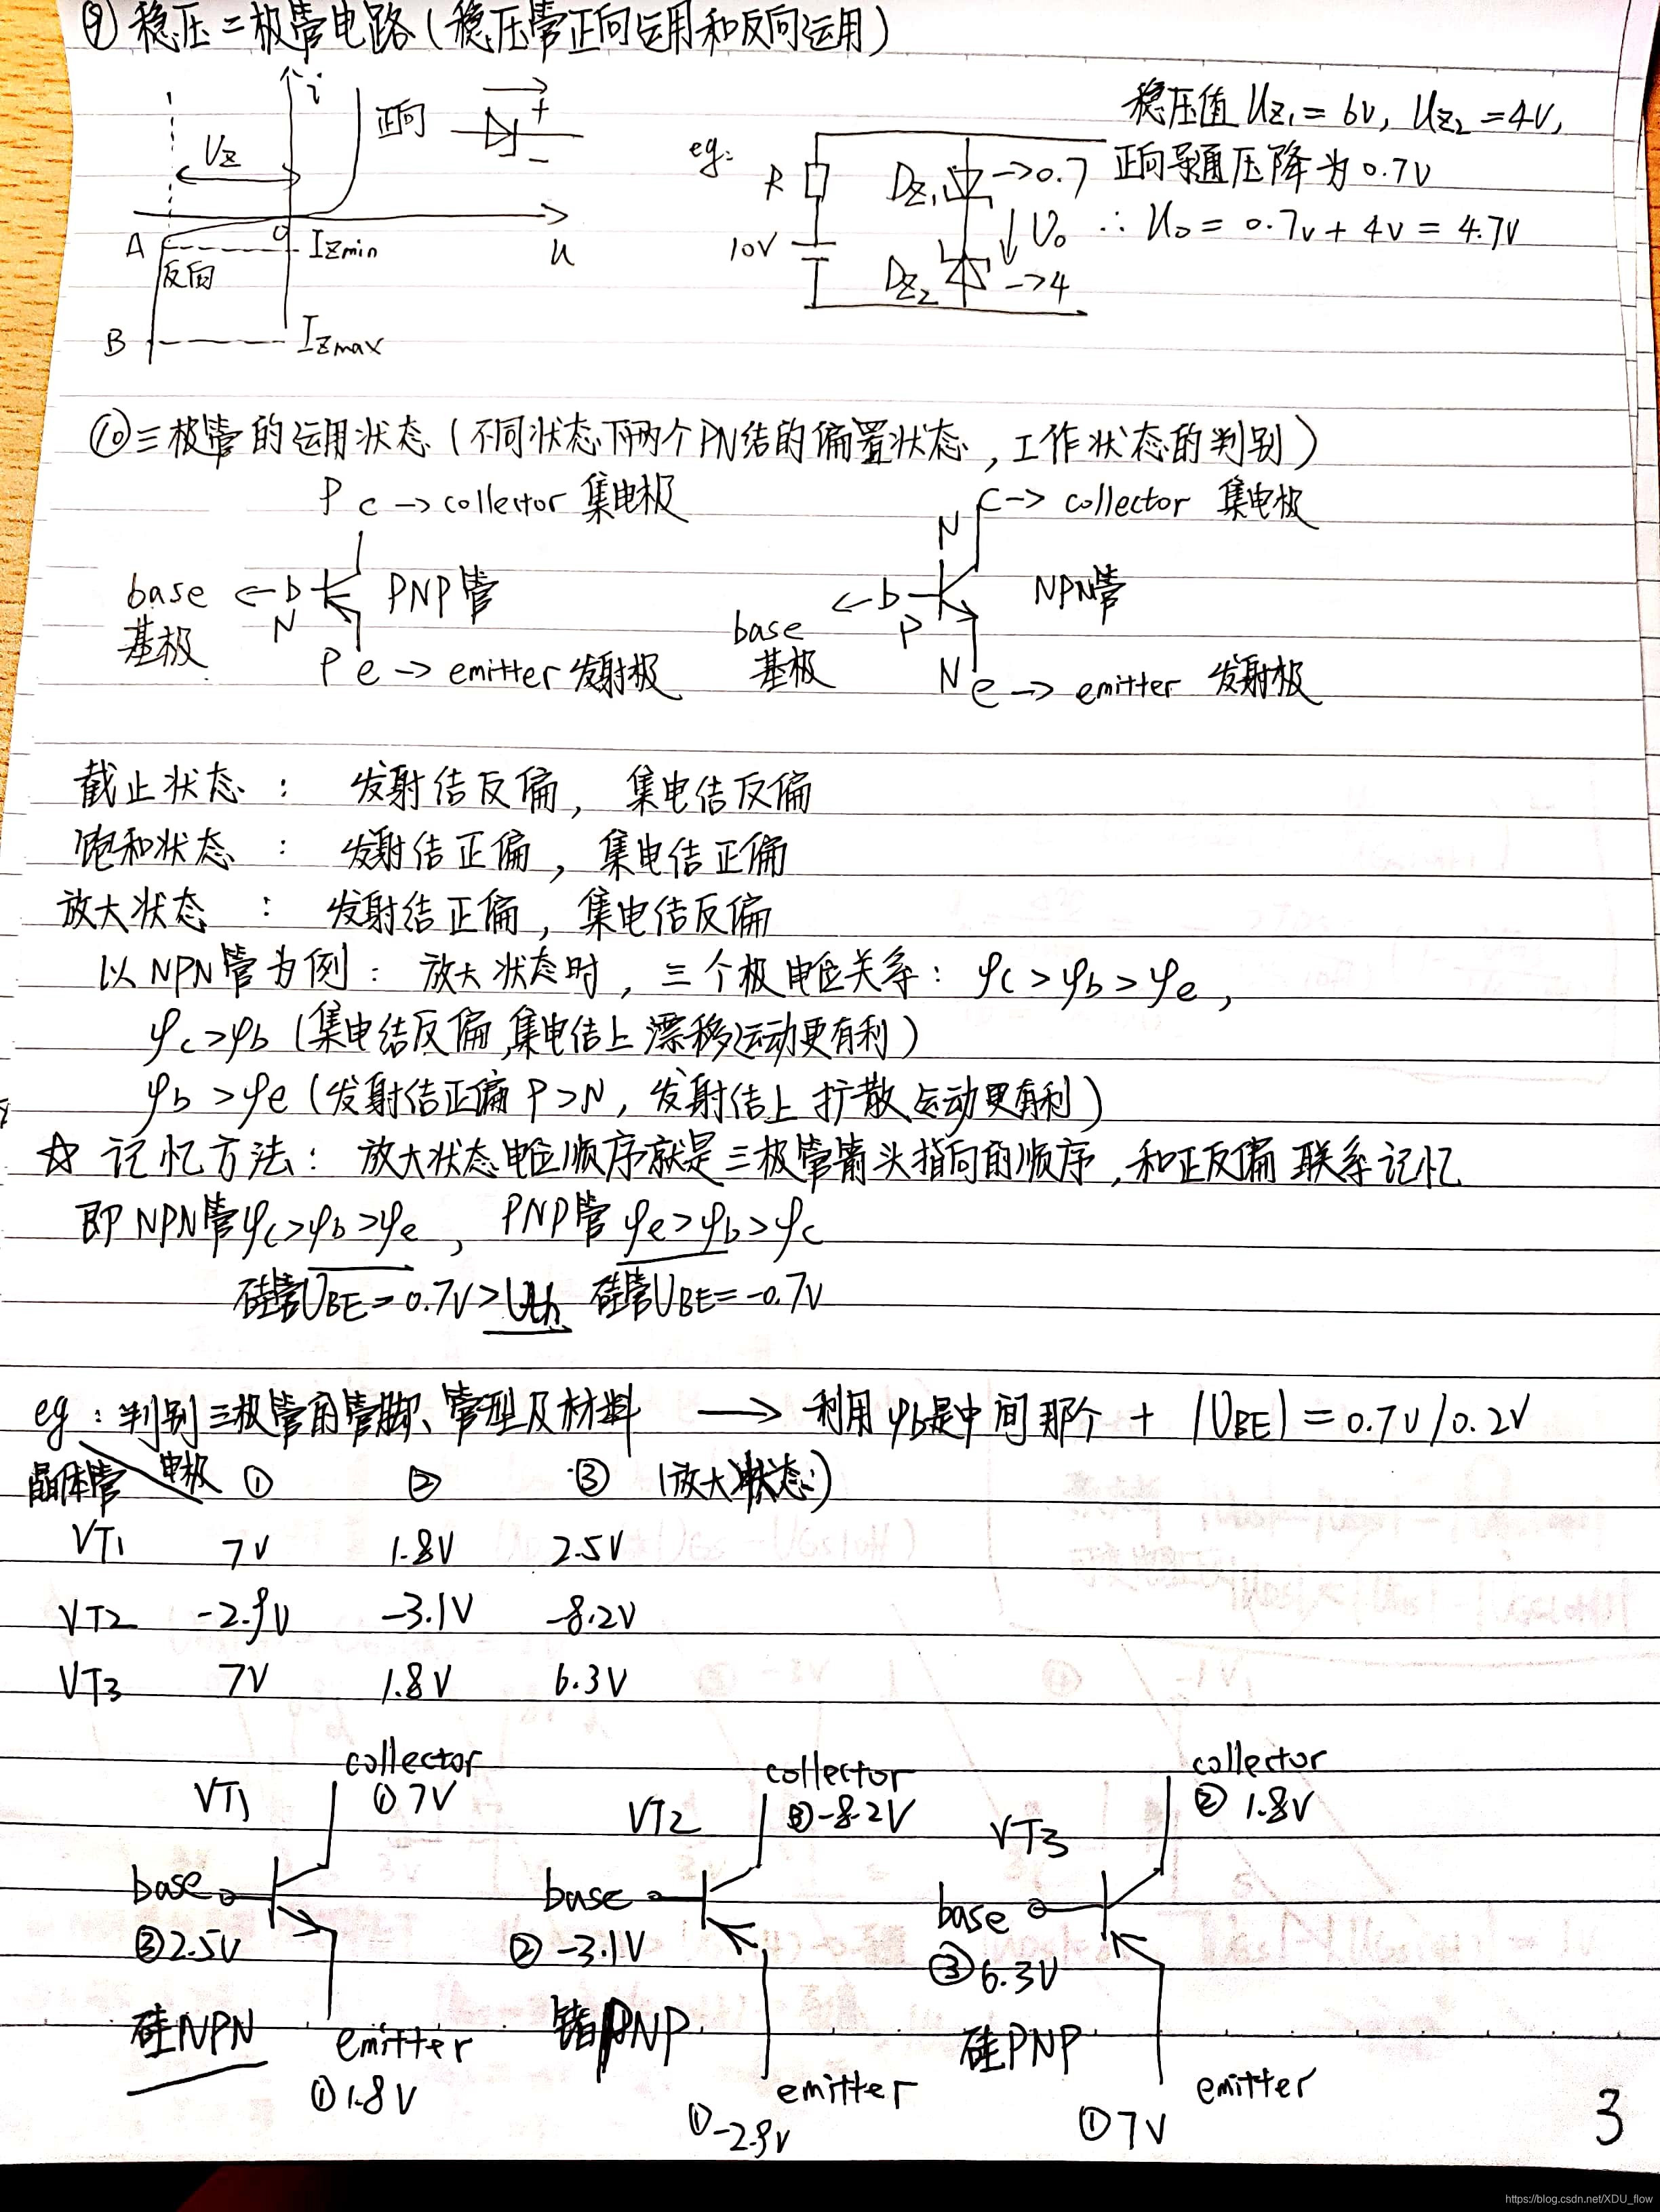 ⑨ 稳压二极管电路（稳压管正向运用和反向运用）
i 正向 + -
Uz
A O Izmin u
反向
B Izmax
eg:
R 10V
Dz1 ->0.7
Dz2 ->4
U₀
稳压值 Uz1 = 6V, Uz2 = 4V,
正向导通压降为 0.7V
∴ U₀ = 0.7V + 4V = 4.7V
⑩ 三极管的运用状态（不同状态下两个PN结的偏置状态，工作状态的判别）
P c -> collector 集电极
base <- b PNP管
基极 N
P e -> emitter 发射极
N c -> collector 集电极
<- b NPN管
base P
基极
N e -> emitter 发射极
截止状态 : 发射结反偏，集电结反偏
饱和状态 : 发射结正偏，集电结正偏
放大状态 : 发射结正偏，集电结反偏
以NPN管为例：放大状态时，三个极电位关系：φc > φb > φe，
φc>φb（集电结反偏，集电结上漂移运动更有利）
φb > φe（发射结正偏 P>N，发射结上扩散运动更有利）
☆ 记忆方法：放大状态电位顺序就是三极管箭头指向的顺序，和正反偏联系记忆
即NPN管φc>φb>φe，PNP管 φe>φb>φc
硅管UBE=0.7V>Uth 硅管UBE=-0.7V
eg：判别三极管的管脚、管型及材料 —> 利用φb是中间那个 + |UBE| = 0.7V/0.2V
晶体管 电极 ① ② ③ (放大状态)
VT1 7V 1.8V 2.5V
VT2 -2.9V -3.1V -8.2V
VT3 7V 1.8V 6.3V
VT1 collector
① 7V
base
③ 2.5V
硅NPN
emitter
① 1.8V
VT2 collector
③ -8.2V
base
② -3.1V
锗PNP
emitter
① -2.9V
VT3 collector
② 1.8V
base
③ 6.3V
硅PNP
emitter
① 7V
3
https://blog.csdn.net/XDU_flow